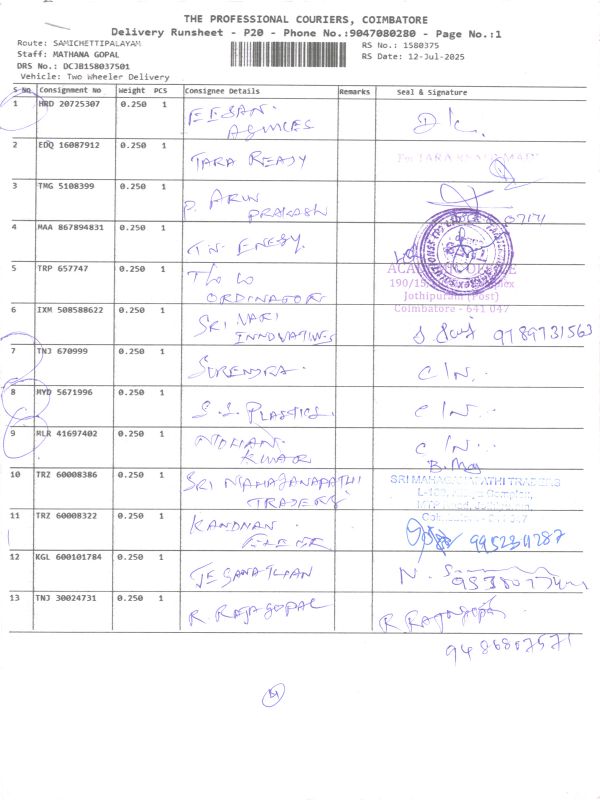 THE PROFESSIONAL COURIERS, COIMBATORE
Delivery Runsheet - P20 - Phone No.:9047080280 - Page No.:1
Route: SAMICHETTIPALAYAM
RS No.: 1580375
Staff: MATHANA GOPAL
RS Date: 12-Jul-2025
DRS No.: DCJB158037501
Vehicle: Two Wheeler Delivery
S No. Consignment No Weight PCS Consignee Details Remarks Seal & Signature
1 HRD 20725307 0.250 1 EESAN.
AGINCES D/C.
2 EDQ 16087912 0.250 1 TARA READY
3 TMG 5108399 0.250 1 P. ARUN
PRAKASH
4 MAA 867894831 0.250 1 TN. ENEGY.
5 TRP 657747 0.250 1 T/o Co
ORDINATOR
190/15
Jothipuram (Post)
Coimbatore - 641 047
6 IXM 508588622 0.250 1 SRI HARI
INNOVATIVES 9789731563
7 TNJ 670999 0.250 1 SURENDRA. C/N.
8 MYD 5671996 0.250 1 S.I. PLASTICS. C/N.
9 MLR 41697402 0.250 1 MOHAN.
KUMAR C/N.
10 TRZ 60008386 0.250 1 SRI MAHAGANAPATHI
TRADERS
SRI MAHAGANAPATHI TRADERS
11 TRZ 60008322 0.250 1 KANDNAN.
12 KGL 600101784 0.250 1 N.
13 TNJ 30024731 0.250 1 R RAJAGOPAL R Rajagopal
9486807571